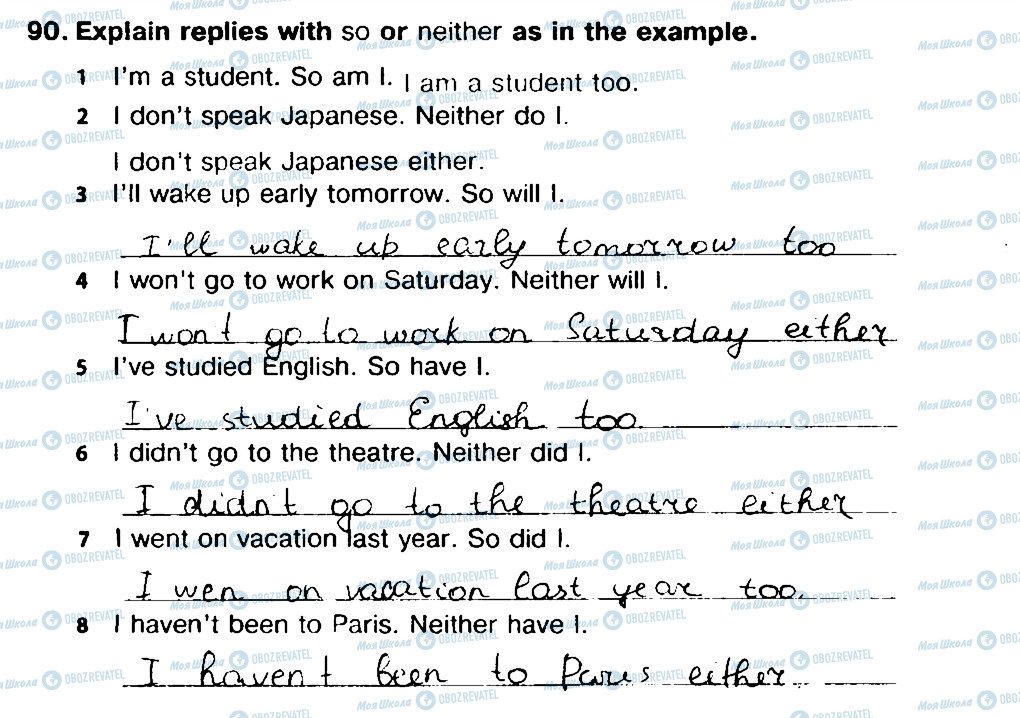 90. Explain replies with so or neither as in the example.
1 I'm a student. So am I. I am a student too.
2 I don't speak Japanese. Neither do I.
I don't speak Japanese either.
3 I'll wake up early tomorrow. So will I.
I'll wake up early tomorrow too
4 I won't go to work on Saturday. Neither will I.
I won't go to work on Saturday either
5 I've studied English. So have I.
I've studied English too.
6 I didn't go to the theatre. Neither did I.
I didn't go to the theatre either
7 I went on vacation last year. So did I.
I wen on vacation last year too.
8 I haven't been to Paris. Neither have I.
I haven't been to Paris either.
Моя Школа OBOZREVATEL